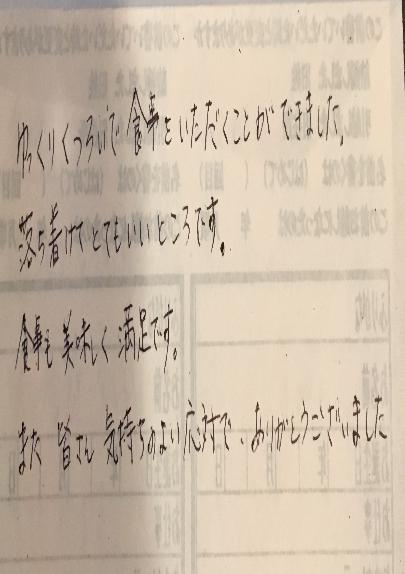 ゆっくりくつろいで食事をいただくことができました。
落ち着けてとてもいいところです。
食事も美味しく満足です。
また皆さん気持ちのよい応対で、ありがとうございました